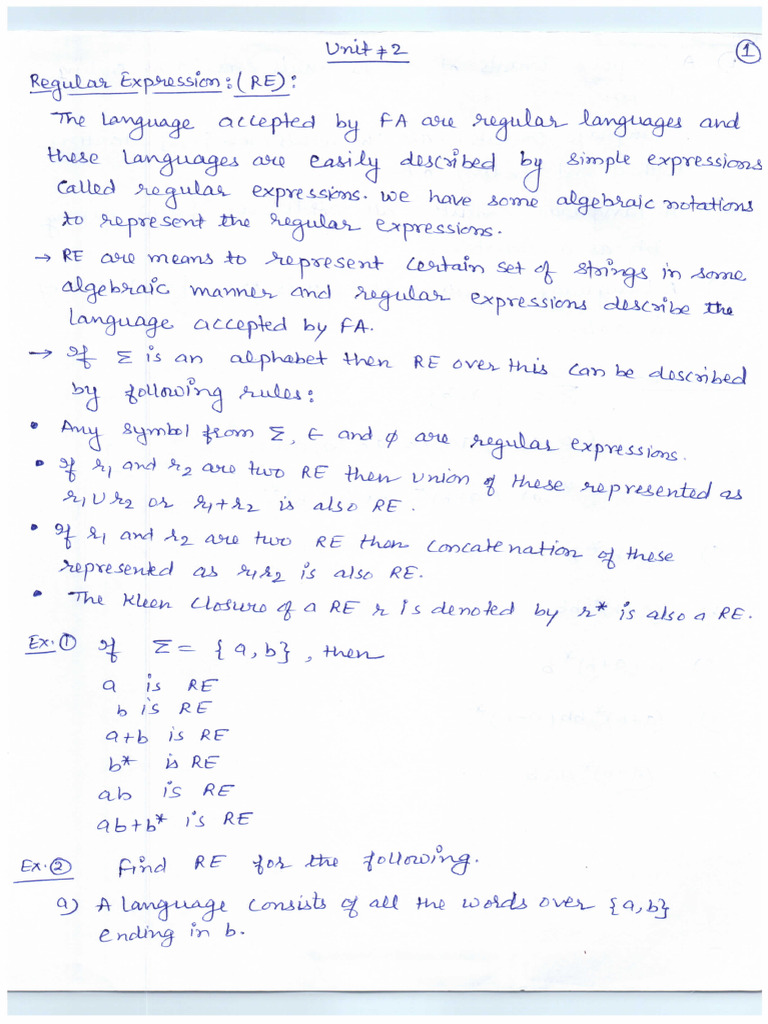 Unit ≠ 2
①
Regular Expression: (RE):
The language accepted by FA are regular languages and
these languages are easily described by simple expressions
called regular expressions. we have some algebraic notations
to represent the regular expressions.
→ RE are means to represent certain set of strings in some
algebraic manner and regular expressions describe the
language accepted by FA.
→ If Σ is an alphabet then RE over this can be described
by following rules:
• Any symbol from Σ, ϵ and ϕ are regular expressions.
• If r₁ and r₂ are two RE then union of these represented as
r₁∪r₂ or r₁+r₂ is also RE.
• If r₁ and r₂ are two RE then concatenation of these
represented as r₁r₂ is also RE.
• The Kleen closure of a RE r is denoted by r* is also a RE.
Ex.① If Σ = {a,b}, then
a is RE
b is RE
a+b is RE
b* is RE
ab is RE
ab+b* is RE
Ex.② Find RE for the following.
a) A language consists of all the words over {a,b}
ending in b.